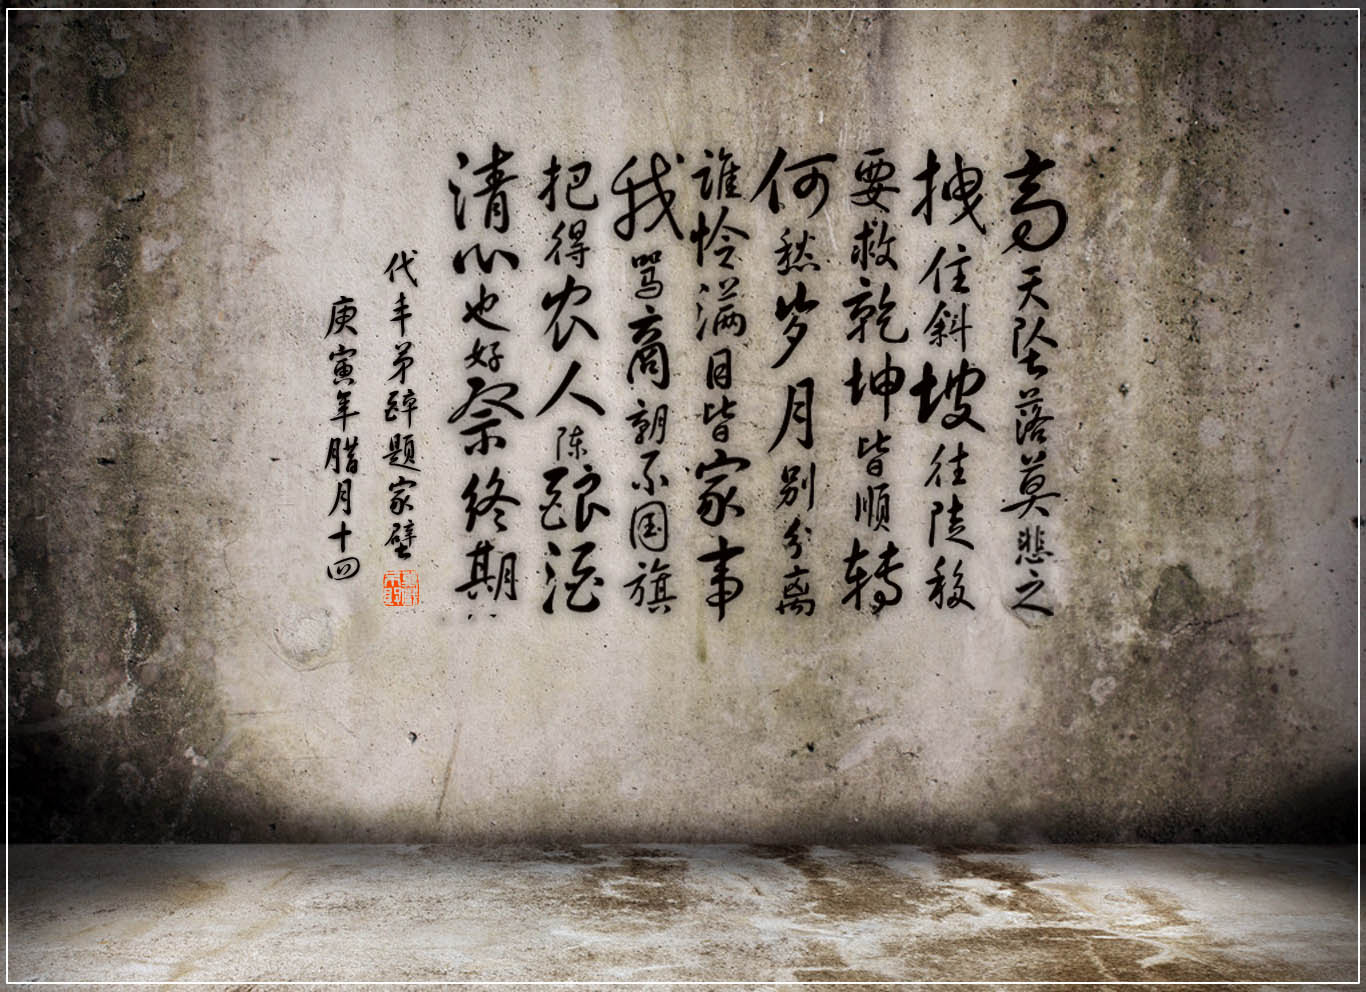 高天坠落莫悲之
拽住斜坡往陡移
要救乾坤皆顺转
何愁岁月别分离
谁怜满目皆家事
我骂商朝不国旗
把得农人陈酿酒
清心也好祭终期
代丰弟醉题家壁
庚寅年腊月十四